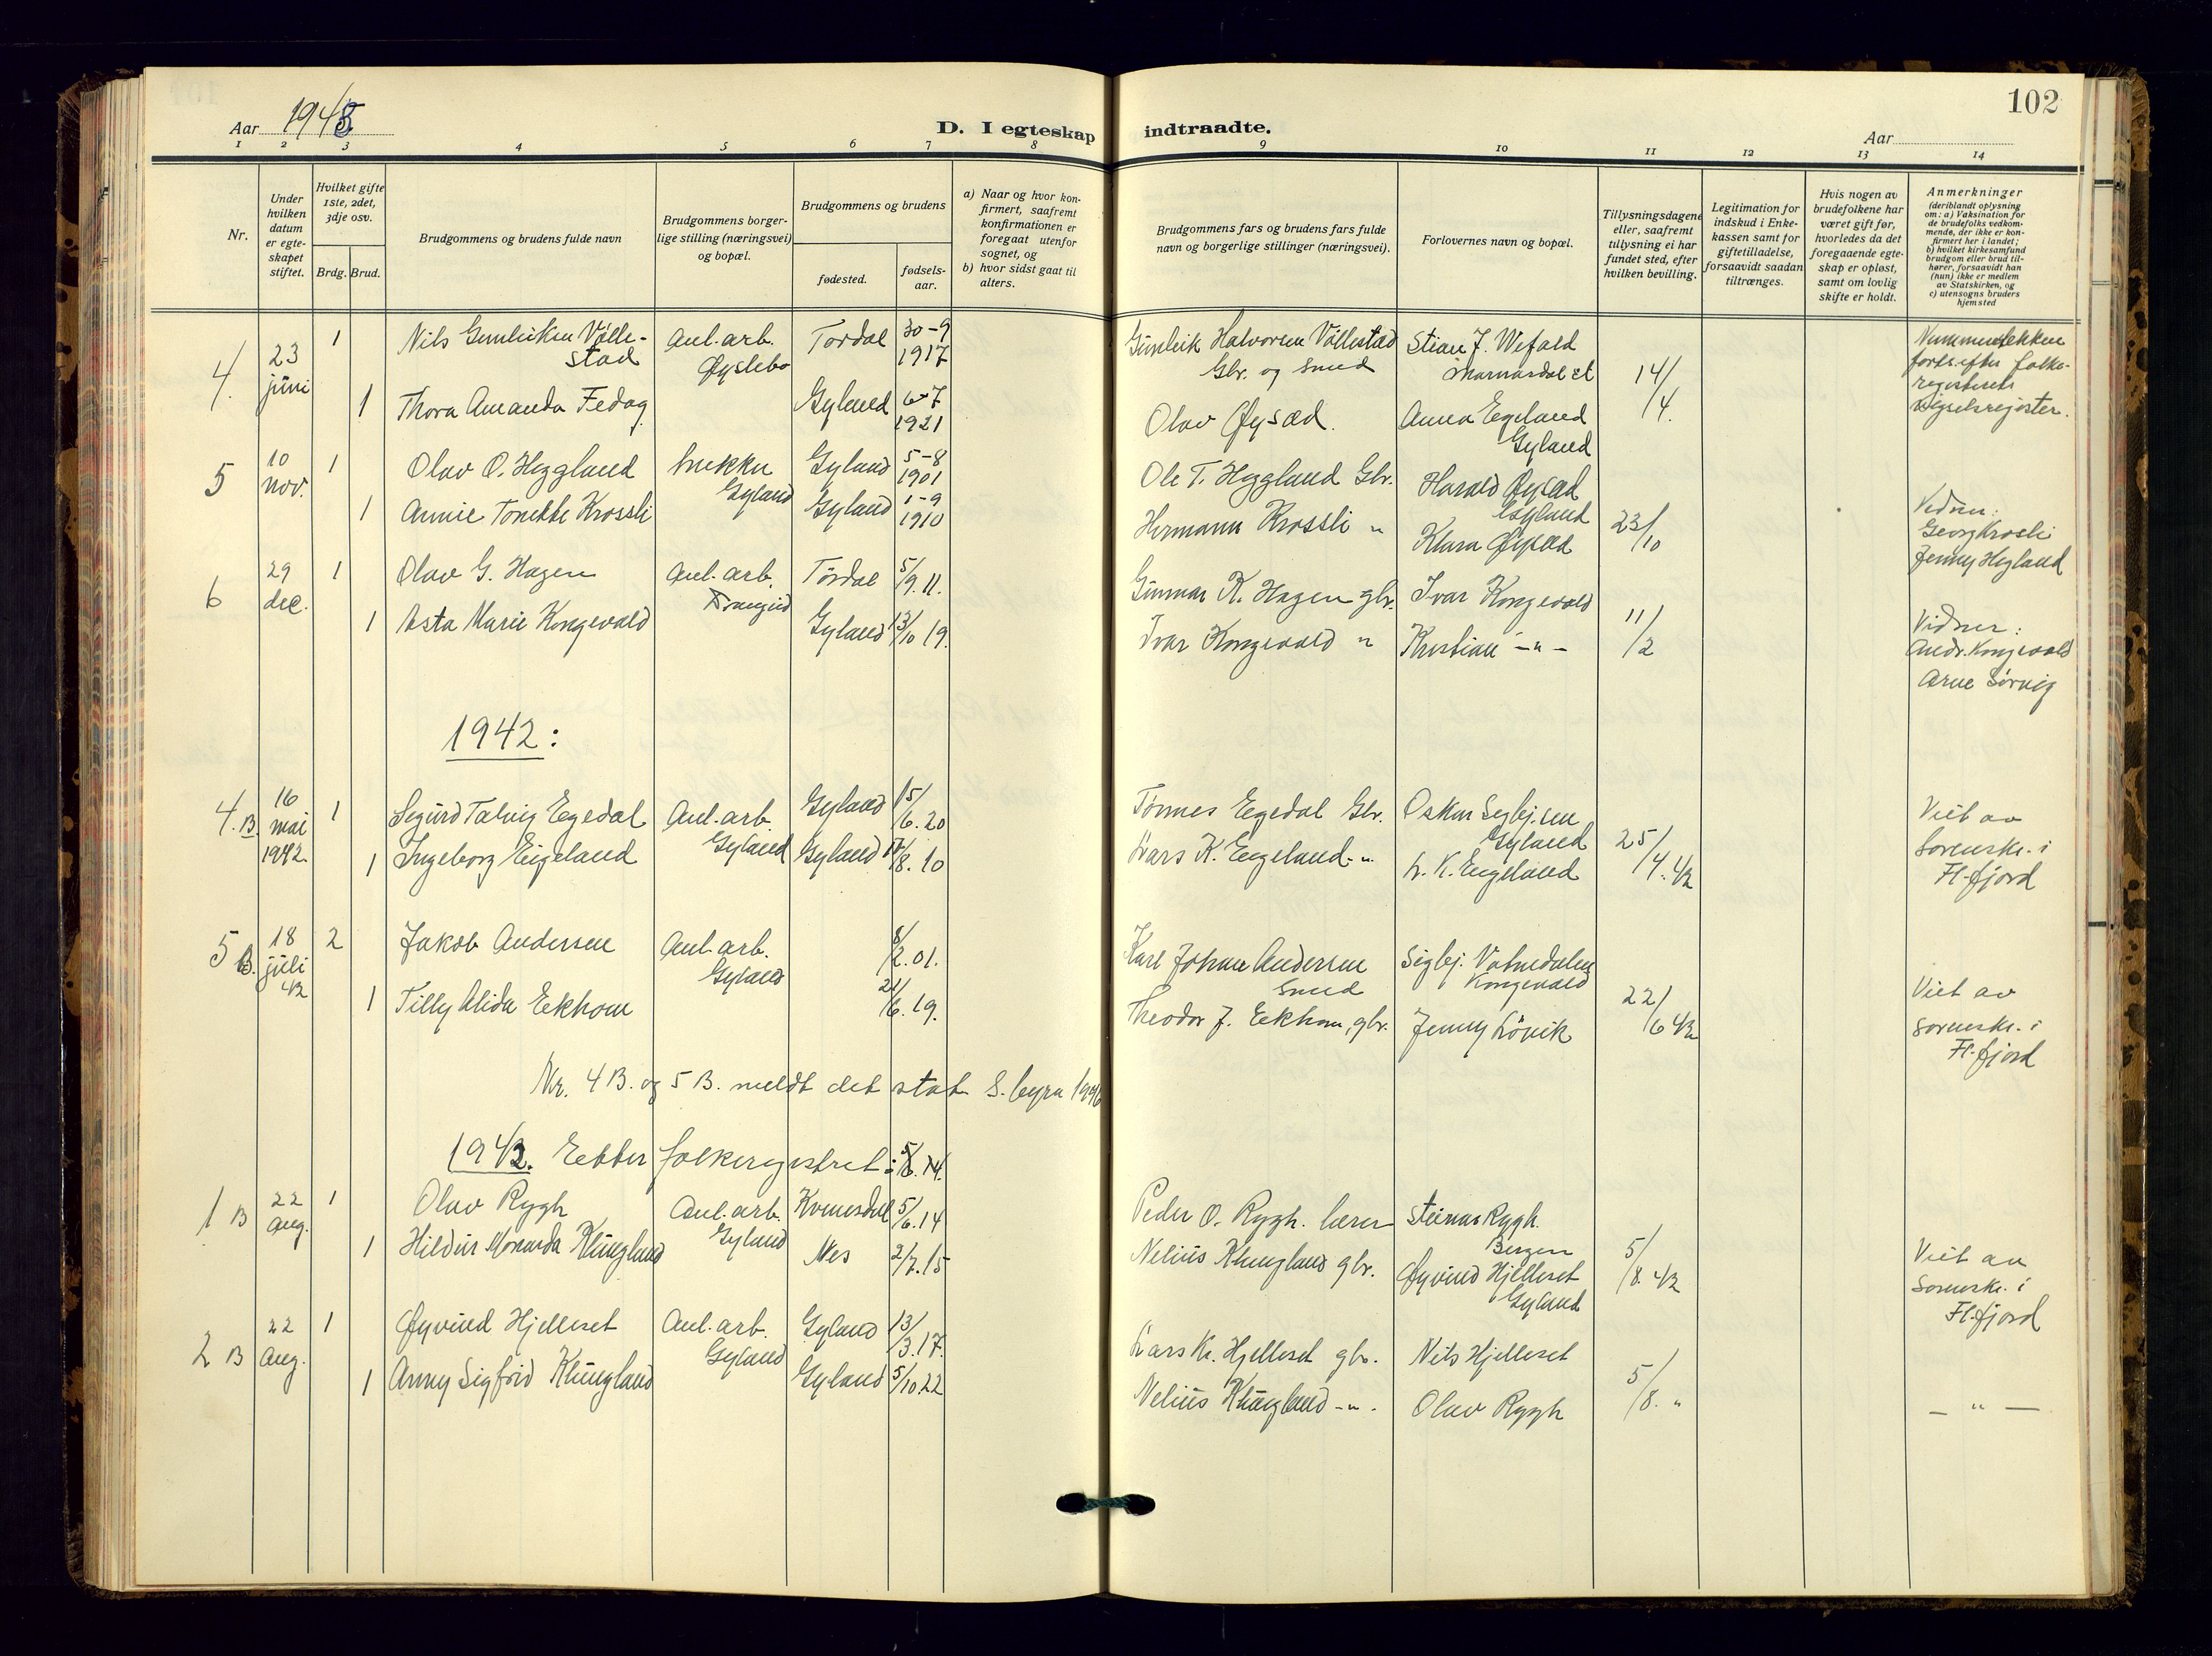 102
Aar 1945
D. I egteskap indtraadte.
Aar
1 2 3 4 5 6 7 8 9 10 11 12 13 14
Nr.
Under hvilken datum er egteskapet stiftet.
Hvilket gifte 1ste, 2det, 3dje osv.
Brdg. Brud.
Brudgommens og brudens fulde navn
Brudgommens borgerlige stilling (næringsvei) og bopæl.
Brudgommens og brudens
fødested.
fødselsaar.
a) Naar og hvor konfirmert, saafremt konfirmationen er foregaat utenfor sognet, og
b) hvor sidst gaat til alters.
Brudgommens fars og brudens fars fulde navn og borgerlige stillinger (næringsvei).
Forlovernes navn og bopæl.
Tillysningsdagene eller, saafremt tillysning ei har fundet sted, efter hvilken bevilling.
Legitimation for indskud i Enkekassen samt for giftetilladelse, forsaavidt saadan tiltrænges.
Hvis nogen av brudefolkene har været gift før, hvorledes da det foregaaende egteskap er opløst, samt om lovlig skifte er holdt.
Anmerkninger (deriblandt oplysning om: a) Vaksination for de brudefolks vedkommende, der ikke er konfirmert her i landet; b) hvilket kirkesamfund brudgom eller brud tilhører, forsaavidt han (hun) ikke er medlem av Statskirken, og c) utensogns bruders hjemsted
4. 23 juni 1 Nils Gunleiksen Vålle-stad Anl. arb. Øyslebø Tordal 30-9 1917 Gunleik Halvorsen Vållestad Gbr. og Smed Stian J. Wefald Marnardal st 14/4.
1 Thora Amanda Fedog Gyland 6-7 1921 Olav Øysæd. Anna Egeland Gyland
5 10 nov. 1 Olav O. Heggland Snekker Gyland Gyland 5-8 1901 Ole T. Heggland Gbr. Harald Øysæd Gyland 23/10 Vidner: Georg Krosli Jenny Hegland
1 Annie Tonette Krossli Gyland 1-9 1910 Hermann Krossli " Klara Øysæd
6 29 dec. 1 Olav G. Hagen Anl. arb. Tördal 5/9.11. Gunnar K. Hagen gbr. Ivar Kongevold 11/2 Vidner: Andr. Kongevold Arne Sørvig
1 Asta Marie Kongevold Gyland 13/10 19. Ivar Kongevold " Kristian - " -
1942:
4.B. 16 mai 1942 1 Sigurd Talvig Egedal Anl. arb. Gyland Gyland 15/6.20 Tønnes Egedal Gbr. Gyland 25/4.42 Viet av Sorenskr. i Fl.fjord
1 Ingeborg Eigeland Gyland 17/8.10 Lars K. Eigeland - " L. K. Eigeland
5 B. 18 juli 42 2 Jakob Andersen Anl. arb. Gyland 8/2.01. Karl Johan Andersen Smed Sigbj. Vatnedalen Kongevold 22/6 42 Viet av Sorenskr. i Fl.fjord
1 Tilly Alida Eekhom 21/6.19. Theodor J. Eekhom, gbr. Jenny Lövik
Nr. 4 B. og 5 B. meldt det stat. S. byrå 1946
1943. Etter folkeregistret: 5/6.14.
1 B 22 aug. 1 Olav Rygh Anl. arb. Gyland Kvinesdal 5/6.14 Peder O. Rygh. lærer Steinar Rygh. Bergen 5/8.42 Viet av Sorenskr. i Fl.fjord
1 Hildur Monarda Klungland Nes 2/7.15 Nelius Klungland gbr. Øyvind Hjelleset Gyland
2 B 22 Aug. 1 Øyvind Hjelleset Anl. arb. Gyland Gyland 13/3.17. Lars Kr. Hjelleset gbr. Nils Hjelleset 5/8. " - " -
1 Anny Sigfrid Klungland Gyland 5/10.22 Nelius Klungland - " - Olav Rygh